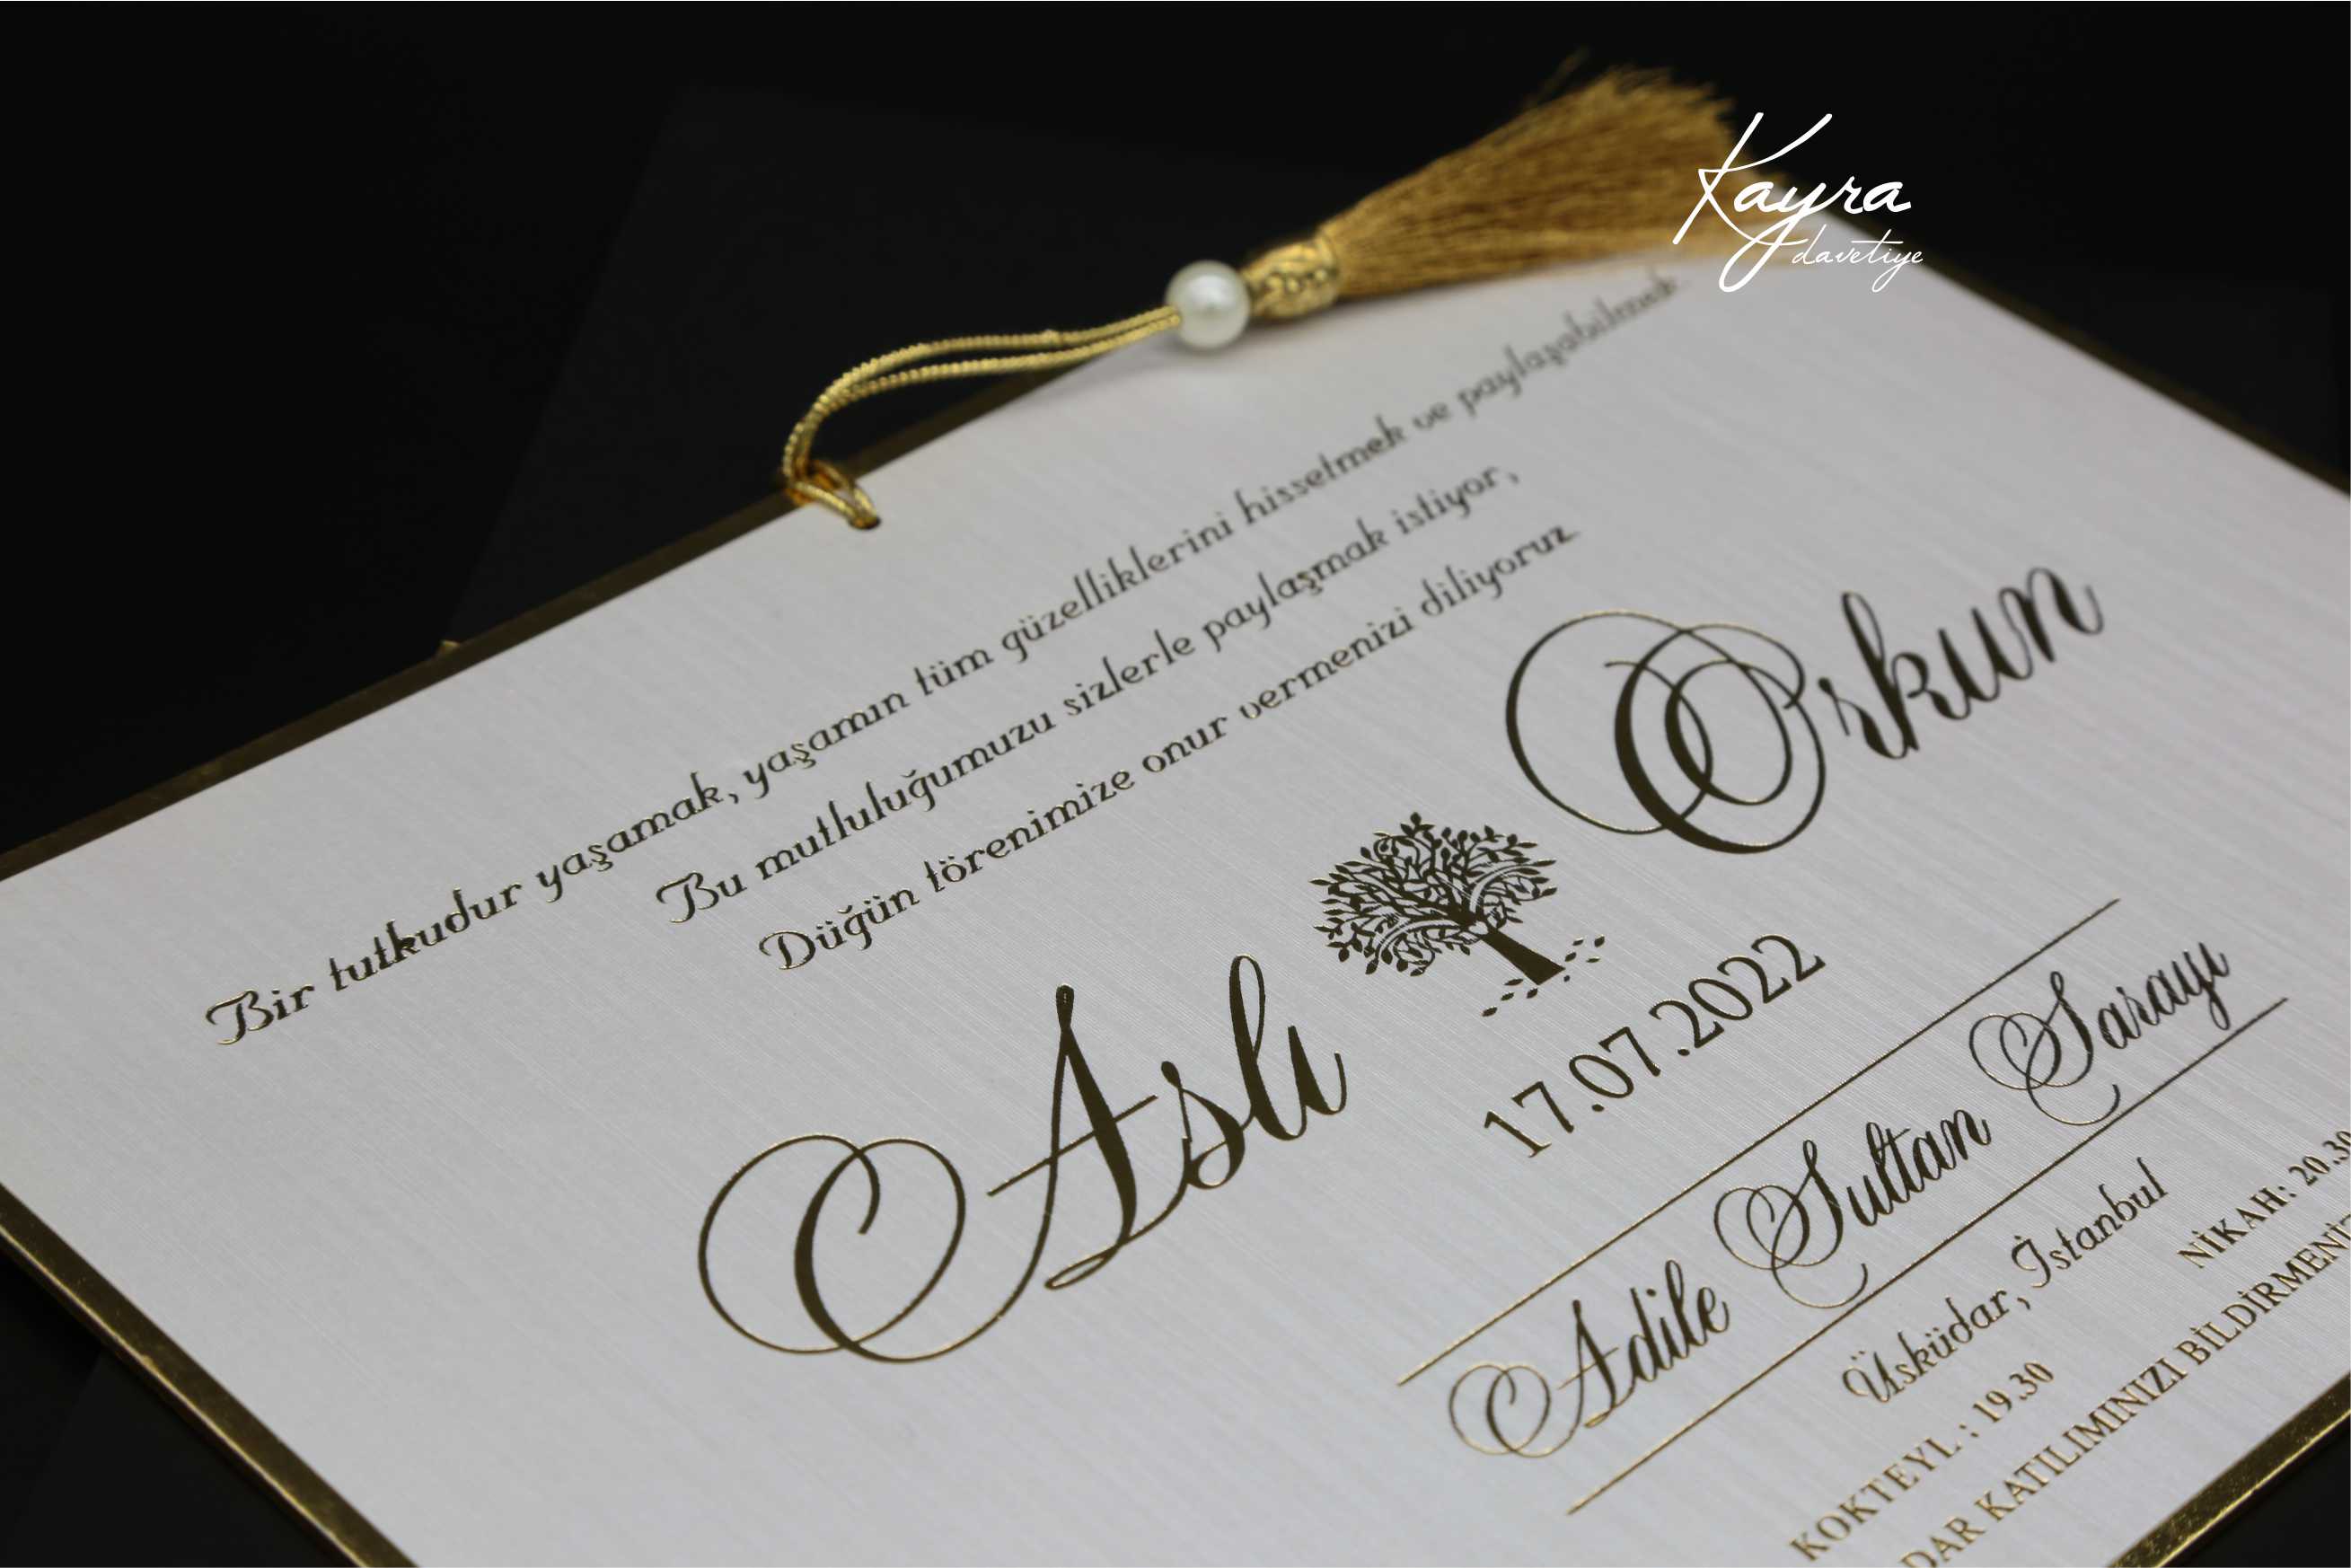 Kayra
davetiye
Bir tutkudur yaşamak, yaşamın tüm güzelliklerini hissetmek ve paylaşabilmek
Bu mutluluğumuzu sizlerle paylaşmak istiyor,
Düğün törenimize onur vermenizi diliyoruz
Aslı Orkun
17.07.2022
Adile Sultan Sarayı
Üsküdar, İstanbul
KOKTEYL : 19.30 NİKAH: 20.30
DAR KATILIMINIZI BİLDİRMENİZ